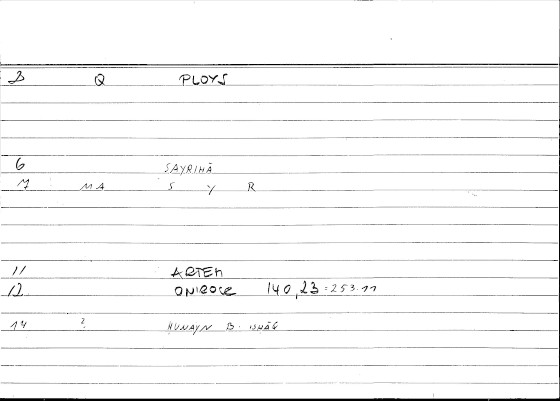 3 Q PLOYS
6 SAYRIHĀ
7 MA S Y R
11 ARTEM
12 ONIROCR 140,23 = 253.11
14 ? ḤUNAYN B. ISḤĀQ